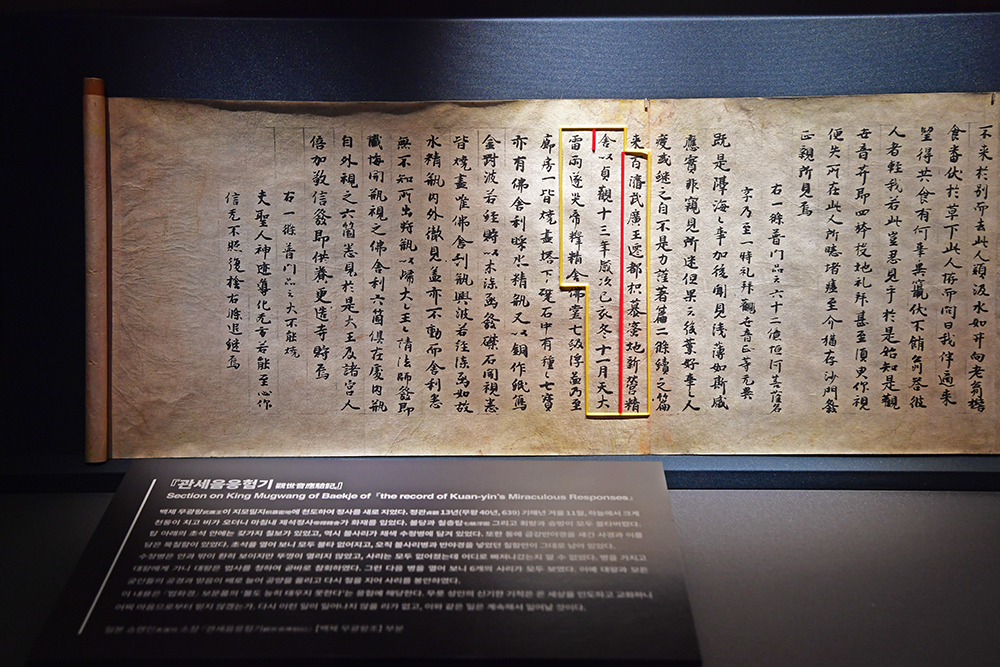 不來於別而去此人頑汲水如井向老翁
食番伏於草下此人係而問曰我伴過來
望得共食有何辜異竄伏不銷翁答彼
人者輕我若此豈忍見乎於是始知是觀
世音并即四拜投地礼拜甚至須臾作視
便失所在此人所聴堵猶存沙門發
正親所見焉
右一條普門品云六十二億恒河菩薩名
字乃至一時礼拜觀世音正等无異
既是渾海之辜加後聞見淺薄如斯感
應實非窺見所迷但杲云後葉好事之人
或継之自不是力謹著篇二條續之篇
來百濟武廣王遷都枳慕蜜地新營精
舍以貞觀十三年歲次己亥冬十一月天大
雷雨遂災帝釋精舍佛堂七級浮啚乃至
廊房一皆燒盡塔下礎石中有種々七寶
亦有佛舍利睬水精瓶又以銅作紙寫
金剛波若經貯以木漆函發礎石開視悉
皆燒盡唯佛舍利瓶與波若經漆函如故
水精瓶內外徹見盖亦不動而舍利悉
無不知所出將瓶以歸大王々請法師發即
懺悔開瓶視之佛舍利六箇俱在處內瓶
自外視之六箇悉見於是大王及諸宮人
倍加敬信發即供養更造寺貯焉
右一條普門品云火不能燒
夫聖人神迹導化无方若能至心作
信无不照復捨右條追継焉
『관세음응험기 觀世音應驗記』
Section on King Mugwang of Baekje of 「the record of Kuan-yin's Miraculous Responses」
백제 무광왕武廣王이 지모밀지枳慕蜜地에 천도하여 정사를 새로 지었다. 정관貞觀 13년(무왕 40년, 639) 기해년 겨울 11월, 하늘에서 크게
천둥이 치고 비가 오더니 마침내 제석정사帝釋精舍가 화재를 입었다. 불당과 칠층탑七級浮圖 그리고 회랑과 승방이 모두 불타버렸다.
탑 아래의 초석 안에는 갖가지 칠보가 있었고, 역시 불사리가 채색 수정병에 담겨 있었다. 또한 동에 금강반야경을 새긴 사경과 이를
담은 목칠함이 있었다. 초석을 열어 보니 모두 불타 없어지고, 오직 불사리병과 반야경을 넣었던 칠함만이 그대로 남아 있었다.
수정병은 안과 밖이 환히 보이지만 뚜껑이 열리지 않았고, 사리는 모두 없어졌는데 어디로 빠져나갔는지 알 수 없었다. 병을 가지고
대왕에게 가니 대왕은 법사를 청하여 곧바로 참회하였다. 그런 다음 병을 열어 보니 6개의 사리가 모두 보였다. 이에 대왕과 모든
궁인들의 공경과 믿음이 배로 늘어 공양을 올리고 다시 절을 지어 사리를 봉안하였다.
이 내용은 '법화경', 보문품의 '불도 능히 태우지 못한다'는 응험에 해당한다. 무릇 성인의 신기한 기적은 온 세상을 인도하고 교화하니
어찌 마음으로부터 받지 않겠는가. 다시 이런 일이 일어나지 않을 리가 없고, 이와 같은 일은 계속해서 일어날 것이다.